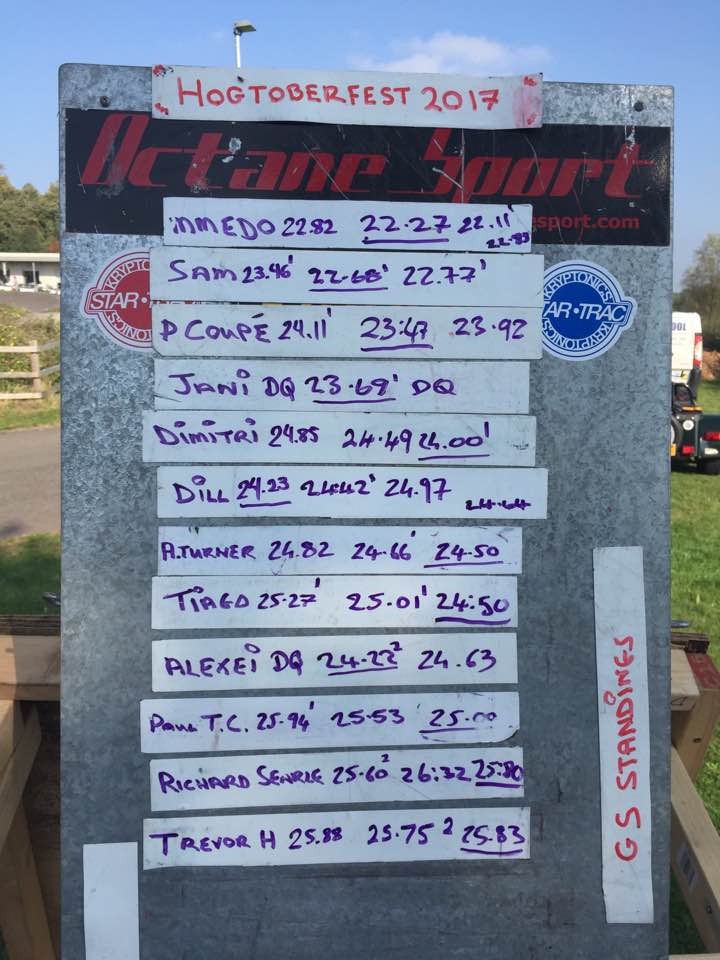 HOGTOBERFEST 2017
Octane Sport
esport.com
immEDO 22.82 22.27 22.11' 22.83
SAM 23.46' 22.68' 22.77'
KRYPTONICS
STAR
KRYPTONICS
P COUPÉ 24.11' 23:47 23.92
KRYPTONICS
AR•TRAC
KRYPTONICS
OOL
JANi DQ 23.69' DQ
DimiTRi 24.85 24.49 24.00'
DiLL 24.23 24.42' 24.97 24.64
A.TURNER 24.82 24.66' 24.50'
TiAGO 25.27' 25.01' 24:50
ALEXEi DQ 24.22² 24.63
PAUL T.C. 25.94' 25.53 25.00
RICHARD SEARLE 25.60² 26:32 25.80
TREVOR H 25.88 25.75² 25.83
GS STANDINGS